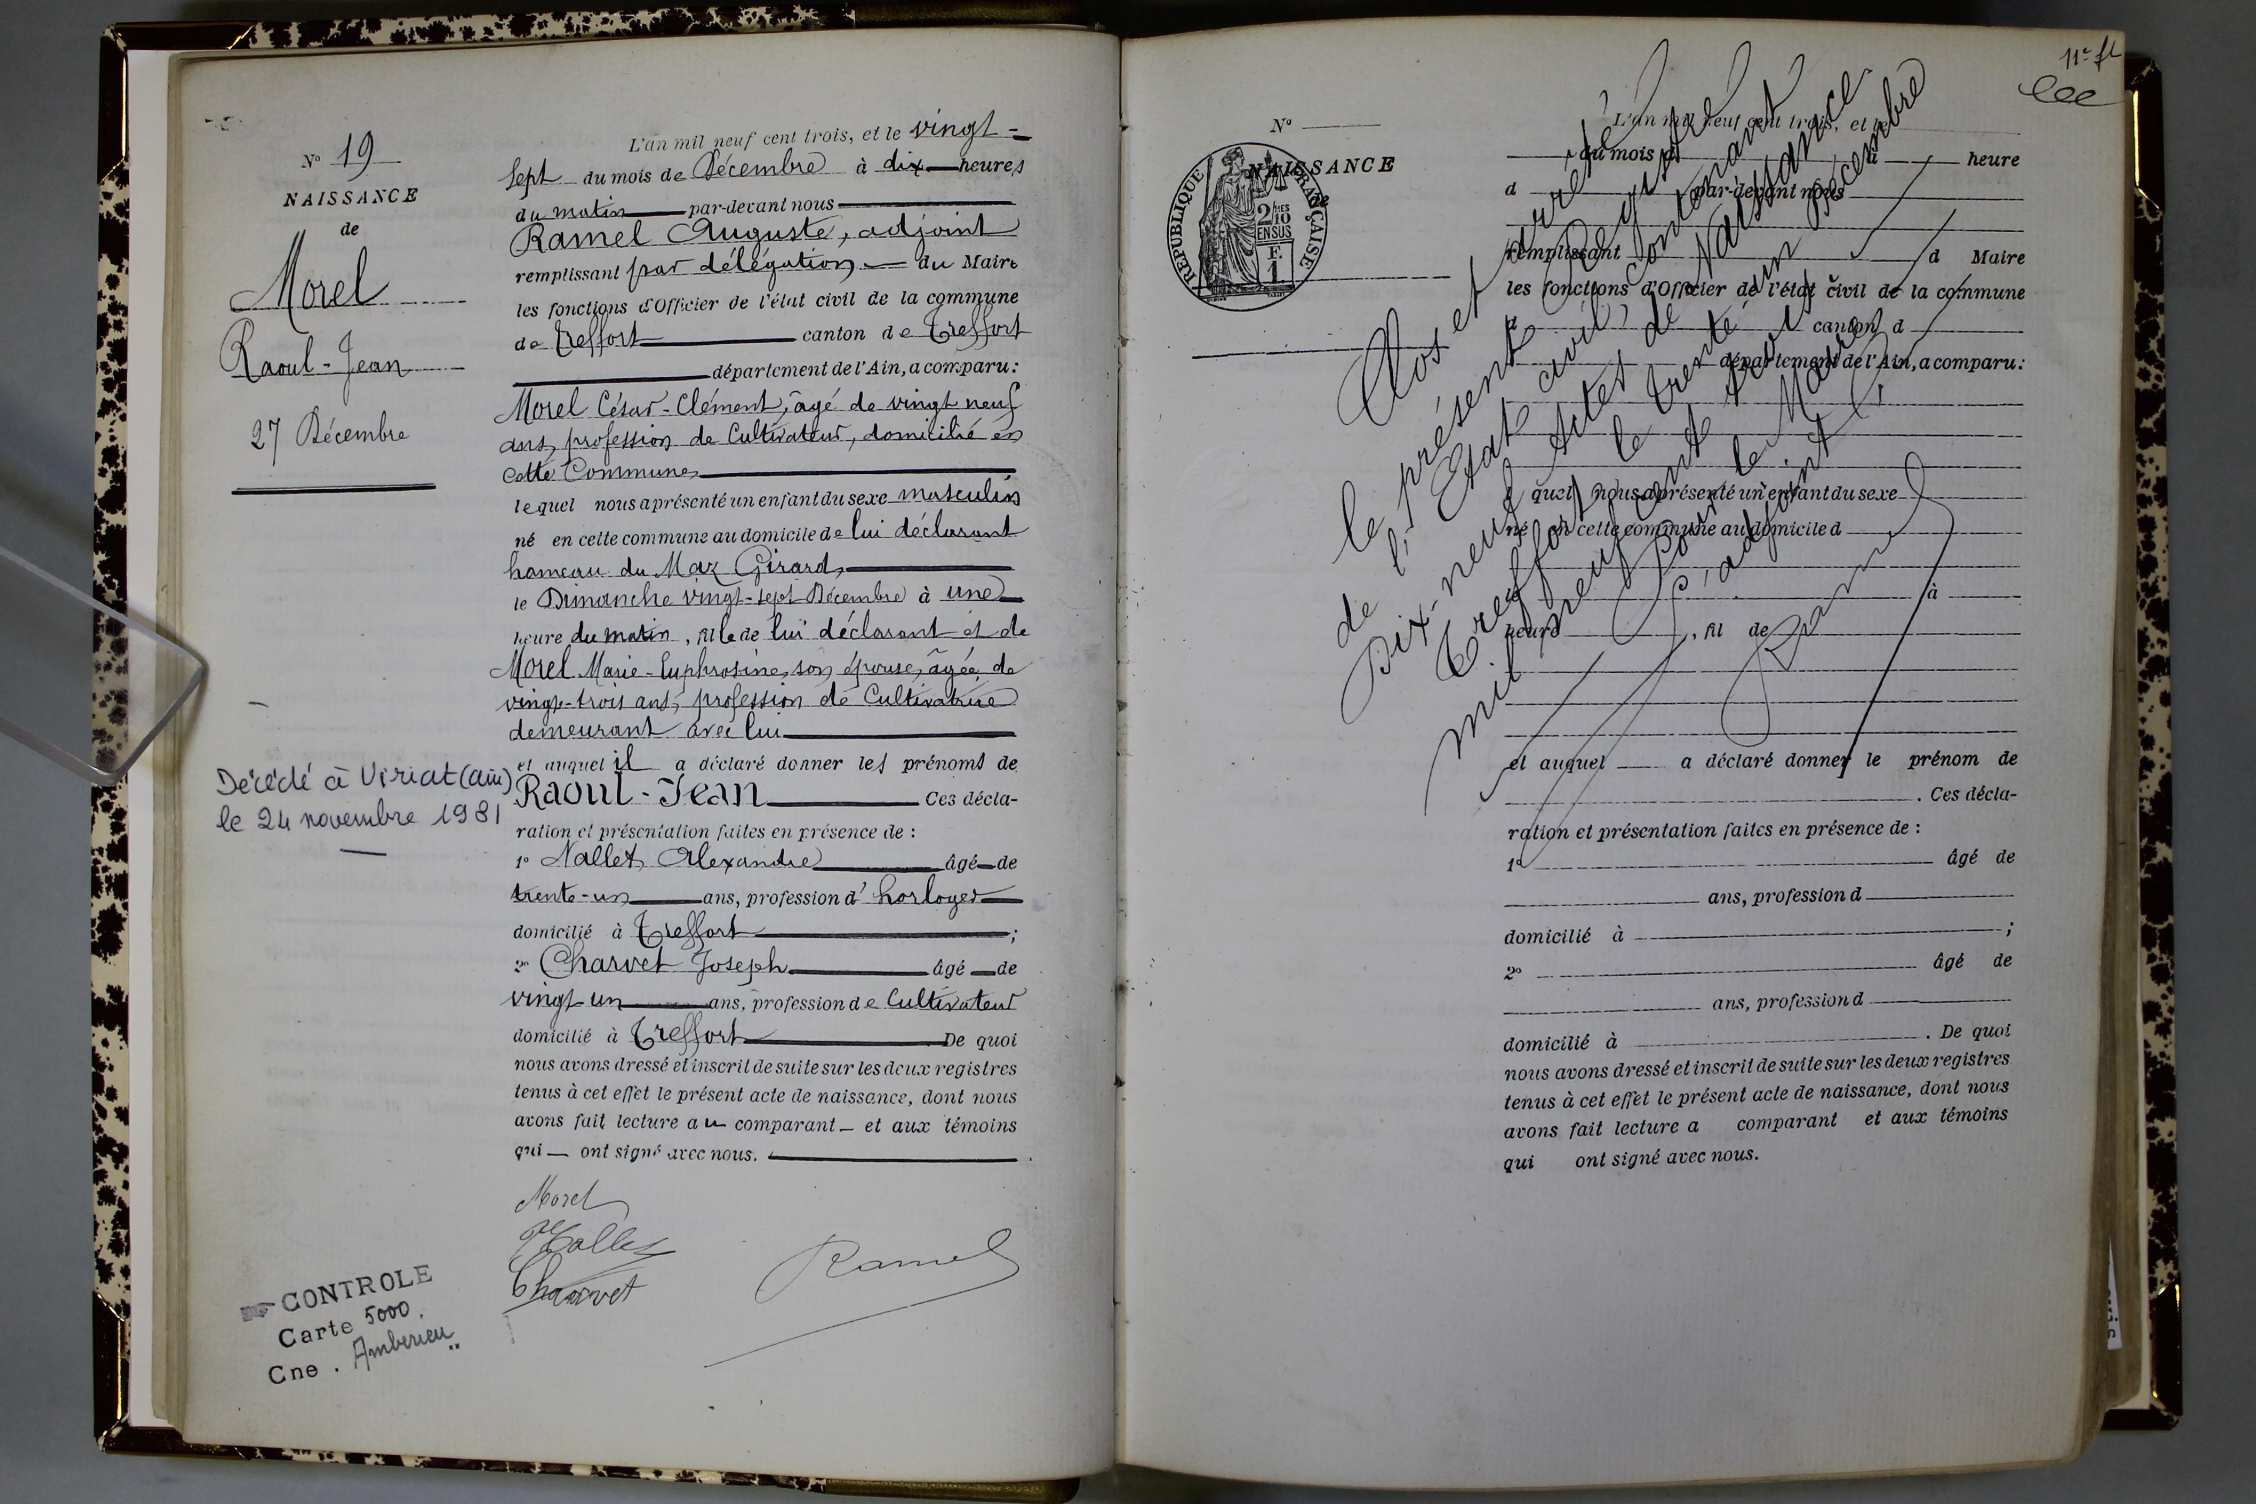 N° 19
NAISSANCE
de
Morel
Raoul-Jean
27 Décembre
Décédé à Viriat (ain)
le 24 novembre 1981
CONTROLE
Carte 5000.
Cne. Amberieu
L'an mil neuf cent trois, et le vingt-
sept du mois de Décembre à dix heures
du matin par-devant nous
Ramel Auguste, adjoint
remplissant par délégation du Maire
les fonctions d'Officier de l'état civil de la commune
de Treffort canton de Treffort
département de l'Ain, a comparu :
Morel César-Clément, âgé de vingt neuf
ans, profession de Cultivateur, domicilié en
cette Commune
lequel nous a présenté un enfant du sexe masculin
né en cette commune au domicile de lui déclarant
hameau du Maz Girard,
le Dimanche vingt-sept Décembre à une
heure du matin, fils de lui déclarant et de
Morel Marie-Euphrosine, son épouse, âgée de
vingt-trois ans, profession de Cultivatrice
demeurant avec lui
et auquel il a déclaré donner les prénoms de
Raoul-Jean Ces décla-
ration et présentation faites en présence de :
1° Nallet Alexandre âgé de
trente-un ans, profession d'horloger
domicilié à Treffort ;
2° Charvet Joseph âgé de
vingt un ans, profession de Cultivateur
domicilié à Treffort De quoi
nous avons dressé et inscrit de suite sur les deux registres
tenus à cet effet le présent acte de naissance, dont nous
avons fait lecture au comparant et aux témoins
qui ont signé avec nous.
Morel
Nallet
Charvet
Ramel
11e ft
N°
NAISSANCE
de
REPUBLIQUE FRANÇAISE
2/10 EN SUS
F. 1
L'an mil neuf cent trois, et le
du mois d à heure
d par-devant nous
remplissant d Maire
les fonctions d'Officier de l'état civil de la commune
d canton d
département de l'Ain, a comparu :
lequel nous a présenté un enfant du sexe
né en cette commune au domicile d
le à
heure , fil de
et auquel a déclaré donner le prénom de
. Ces décla-
ration et présentation faites en présence de :
1° âgé de
ans, profession d
domicilié à ;
2° âgé de
ans, profession d
domicilié à . De quoi
nous avons dressé et inscrit de suite sur les deux registres
tenus à cet effet le présent acte de naissance, dont nous
avons fait lecture a comparant et aux témoins
qui ont signé avec nous.
Clos et arrêté
le présent Registre
de l'Etat civil, contenant
Dix-neuf Actes de Naissance
Treffort le trente un Décembre
mil neuf cent trois
Pour le Maire
L'adjoint
Ramel